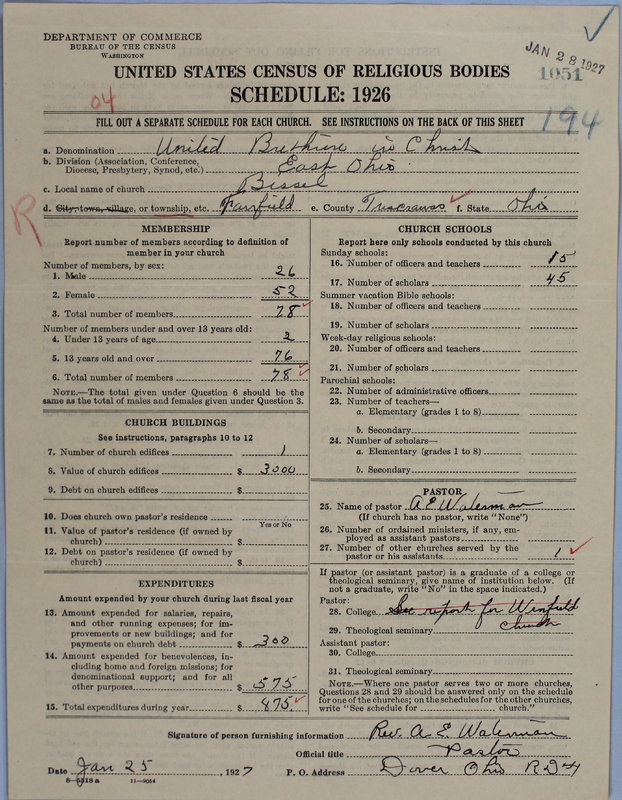 DEPARTMENT OF COMMERCE
BUREAU OF THE CENSUS
WASHINGTON
JAN 28 1927
1051
UNITED STATES CENSUS OF RELIGIOUS BODIES
SCHEDULE: 1926
04
194
FILL OUT A SEPARATE SCHEDULE FOR EACH CHURCH. SEE INSTRUCTIONS ON THE BACK OF THIS SHEET
a. Denomination United Brethren in Christ
b. Division (Association, Conference, Diocese, Presbytery, Synod, etc.) East Ohio
c. Local name of church Bissel
d. City, town, village, or township, etc. Fairfield e. County Tuscrawas f. State Ohio
R
MEMBERSHIP
Report number of members according to definition of
member in your church
Number of members, by sex:
1. Male 26
2. Female 52
3. Total number of members 78
Number of members under and over 13 years old:
4. Under 13 years of age 2
5. 13 years old and over 76
6. Total number of members 78
NOTE.—The total given under Question 6 should be
same as the total of males and females given under Question 3.
CHURCH BUILDINGS
See instructions, paragraphs 10 to 12
7. Number of church edifices 1
8. Value of church edifices $ 3000
9. Debt on church edifices $
10. Does church own pastor's residence
Yes or No
11. Value of pastor's residence (if owned by
church) $
12. Debt on pastor's residence (if owned by
church) $
EXPENDITURES
Amount expended by your church during last fiscal year
13. Amount expended for salaries, repairs,
and other running expenses; for im-
provements or new buildings; and for
payments on church debt $ 300
14. Amount expended for benevolences, in-
cluding home and foreign missions; for
denominational support; and for all
other purposes $ 575
15. Total expenditures during year $ 875.
CHURCH SCHOOLS
Report here only schools conducted by this church
Sunday schools:
16. Number of officers and teachers 15
17. Number of scholars 45
Summer vacation Bible schools:
18. Number of officers and teachers
19. Number of scholars
Week-day religious schools:
20. Number of officers and teachers
21. Number of scholars
Parochial schools:
22. Number of administrative officers
23. Number of teachers—
a. Elementary (grades 1 to 8)
b. Secondary
24. Number of scholars—
a. Elementary (grades 1 to 8)
b. Secondary
PASTOR
25. Name of pastor A E Waterman
(If church has no pastor, write "None")
26. Number of ordained ministers, if any, em-
ployed as assistant pastors
27. Number of other churches served by the
pastor or his assistants 1
If pastor (or assistant pastor) is a graduate of a college or
theological seminary, give name of institution below. (If
not a graduate, write "No" in the space indicated.)
Pastor:
28. College See report for Winfield
29. Theological seminary church
Assistant pastor:
30. College
31. Theological seminary
NOTE.—Where one pastor serves two or more churches,
Questions 28 and 29 should be answered only on the schedule
for one of the churches; on the schedules for the other churches,
write "See schedule for church."
Signature of person furnishing information Rev. A E Waterman
Official title Pastor
Date Jan 25, 1927 P. O. Address Dover Ohio RD4
8-5318a 11-9054